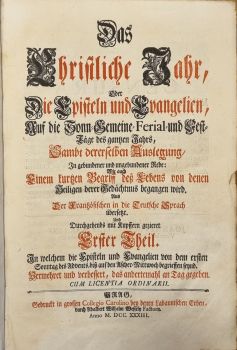 Das
Christliche Jahr,
Oder
Die Episteln und Evangelien,
Auf die Sonn-Gemeine-Ferial-und Fest-
Täge des gantzen Jahrs,
Sambt dererselben Auslegung,
In gebundener und ungebundener Rede:
Wie auch
Einem kurtzen Begriff des Lebens von denen
Heiligen derer Gedächtnus begangen wird.
Aus
Der Frantzösischen in die Teutsche Sprach
übersetzt.
Und
Durchgehends mit Kupffern gezieret.
Erster Theil.
In welchem die Episteln und Evangelien von dem ersten
Sonntag des Advents, biß auf den Ascher-Mittwoch begriffen seynd.
Vermehret und verbessert, das andertemahl an Tag gegeben.
CUM LICENTIA ORDINARII.
PRAG,
Gedruckt in grossen Collegio Carolino bey denen Labaunischen Erben,
durch Adalbert Wilhelm Wessely Factorn.
Anno M. DCC. XXXIII.